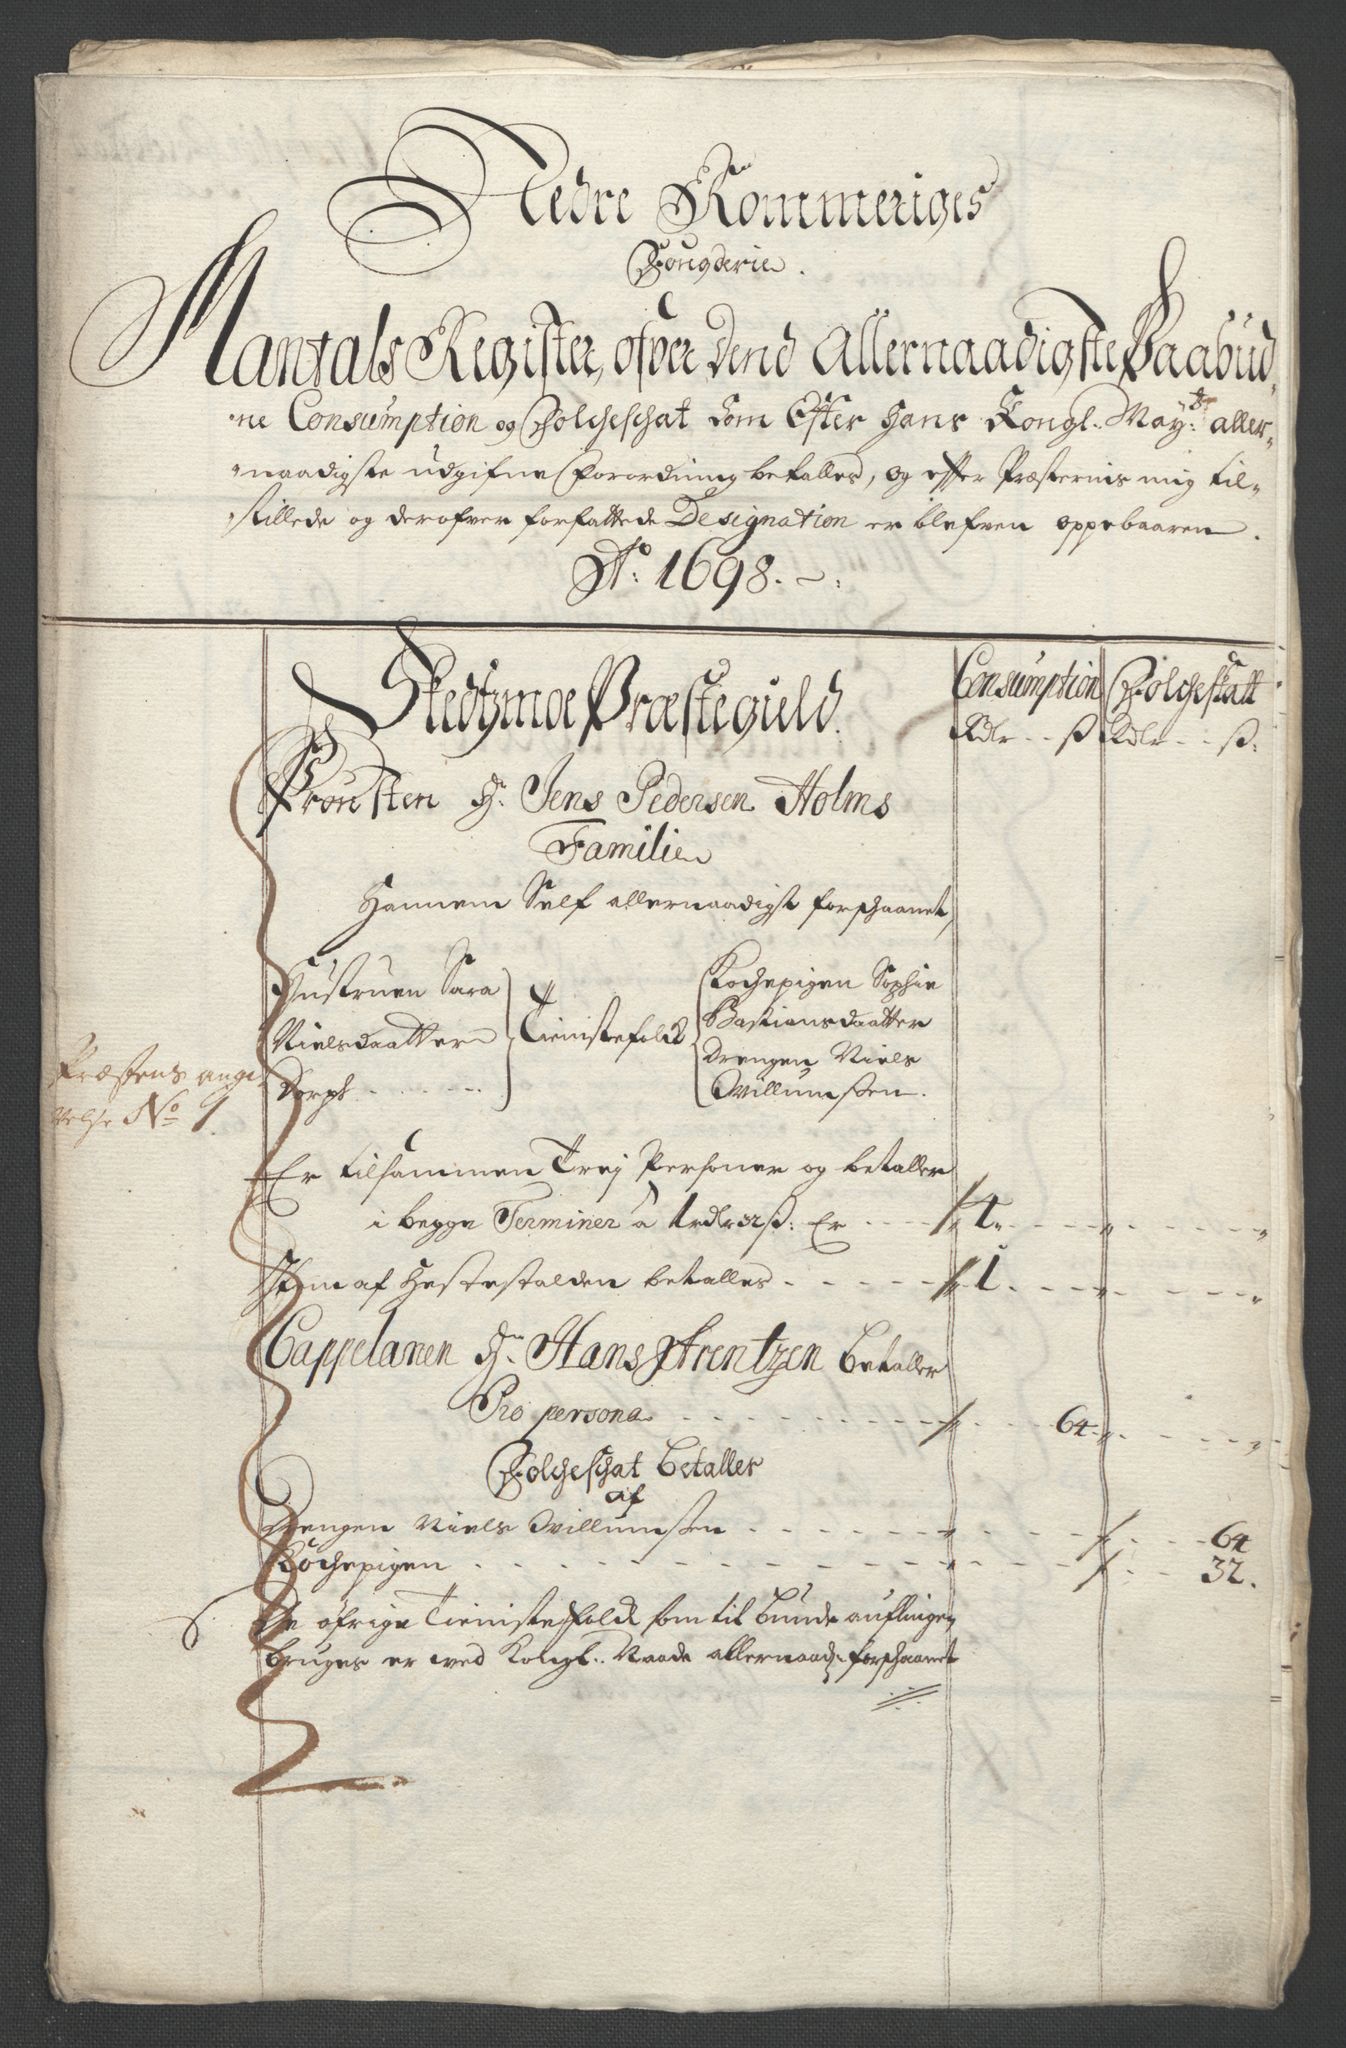 Nedre Rommeriges
Fougderie.
Mantals Register, ofver dend Allernaadigste Paabud,
ne Consumption og Folcheschat som Efter Hans Kongl. May:ts aller-
naadigste udgifne Forordning betalles, og effter Præsternis mig til-
stillede og derofver forfattede Designation er blefven oppebaaren.
Ao: 1698.
Skedtzmoe Præstegield.
Consumption Folcheskatt
Rdlr ß Rdlr ß:
Prousten Hr. Jens Pedersen Holms
Familie
Hannem Self allernaadigst forschaanet,
Hustruen Sara
Nielsdaatter
Dorph
Tienistefolck
Kochepigen Sophie
Bastiansdaatter
Drengen Niels
Willumsen.
Præstens angi-
velse No 1.
Er tilsammen Trej Personer og betaller
i begge Terminer à 1 rdlr 32 ß: Er 4
Item af Hestestalden betalles 1
Cappelanen Hr. Hans Arentzen betaller
Pro persona 64
Folcheschat betalles
af
Drengen Niels Willumsen 64
Kochepigen 32.
De øfrige Tienistefolck som til Bunde auflingen
bruges er ved Kongl. Naade allernaad: forschaanet